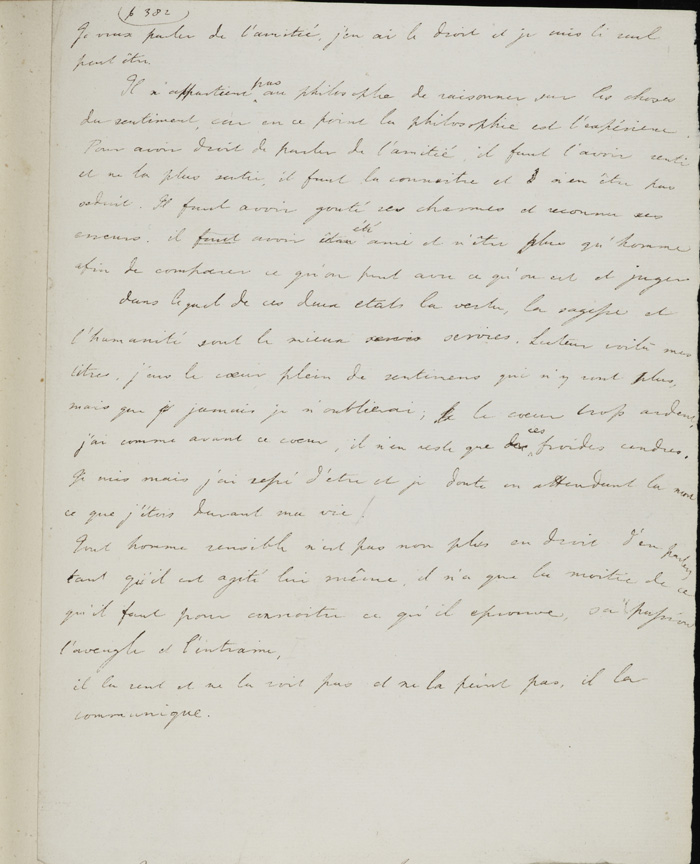 p 382
Je veux parler de l'amitié, j'en ai le droit et je suis le seul
peut être.
Il n'appartient pas au philosophe de raisonner sur les choses
du sentiment, car en ce point la philosophie est l'expérience.
Pour avoir droit de parler de l'amitié, il faut l'avoir senti
et ne la plus sentir, il faut la connoitre et n'en être pas
séduit. Il faut avoir gouté ses charmes et reconnu ses
erreurs. il faut avoir été ami et n'être plus qu'homme
afin de comparer ce qu'on peut avec ce qu'on est et juger
dans lequel de ces deux etats la vertu, la sagesse et
l'humanité sont le mieux servies. Lecteur voilà mes
titres, j'eus le cœur plein de sentimens qui n'y sont plus,
mais que jamais je n'oublierai; le cœur trop ardent,
j'ai comme avant ce coeur, il n'en reste que ces froides cendres.
Je suis mais j'ai cessé d'être et je doute en attendant la mort
ce que j'étois durant ma vie!
Tout homme sensible n'est pas non plus en droit d'en parler
tant qu'il est agité lui même, il n'a que la moitié de ce
qu'il faut pour connoitre ce qu'il eprouve, sa passion
l'aveugle et l'entraine,
il la sent et ne la voit pas et ne la peint pas, il la
communique.